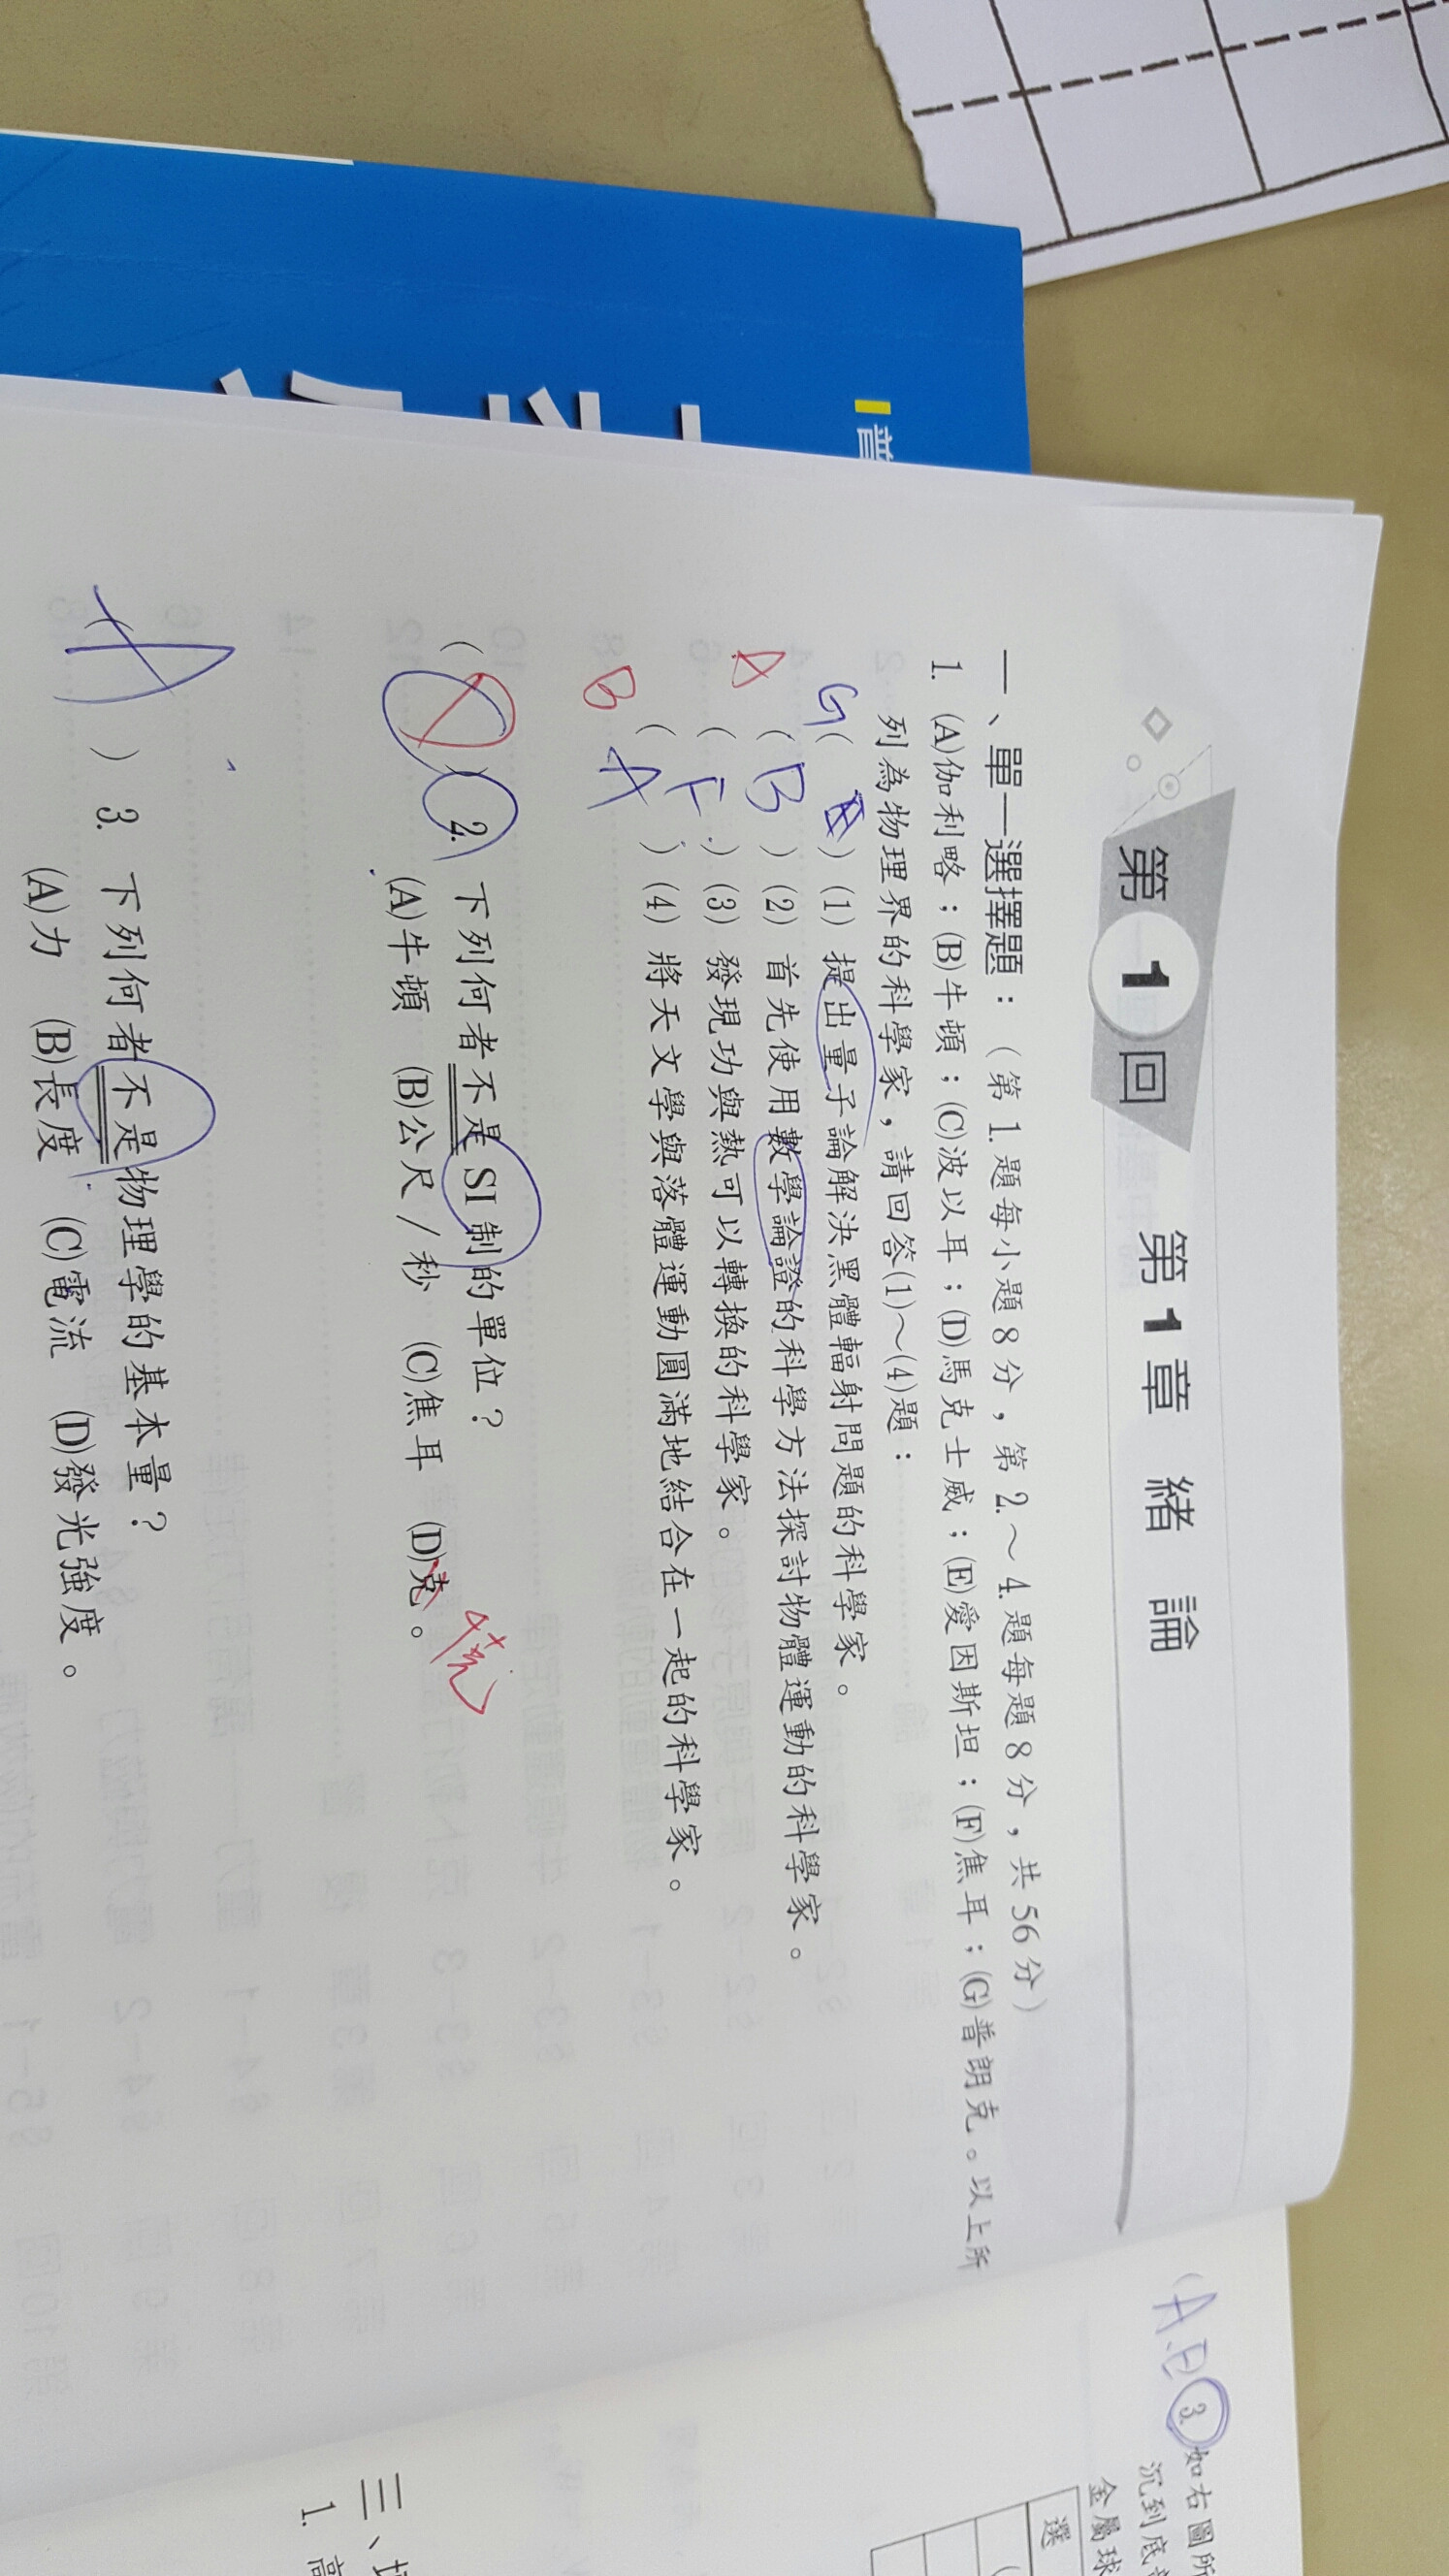 普
第1回 第1章 緒論
一、單一選擇題：（第1.題每小題8分，第2.～4.題每題8分，共56分）
1. (A)伽利略；(B)牛頓；(C)波以耳；(D)馬克士威；(E)愛因斯坦；(F)焦耳；(G)普朗克。以上所
列為物理界的科學家，請回答(1)～(4)題：
G( )(1) 提出量子論解決黑體輻射問題的科學家。
A( B )(2) 首先使用數學論證的科學方法探討物體運動的科學家。
( F )(3) 發現功與熱可以轉換的科學家。
B( A )(4) 將天文學與落體運動圓滿地結合在一起的科學家。
( D )2. 下列何者不是SI制的單位？
(A)牛頓 (B)公尺／秒 (C)焦耳 (D)克。
( A )3. 下列何者不是物理學的基本量？
(A)力 (B)長度 (C)電流 (D)發光強度。
(A.E 3. 如右圖所
沉到底
金屬球
選
三、
1.